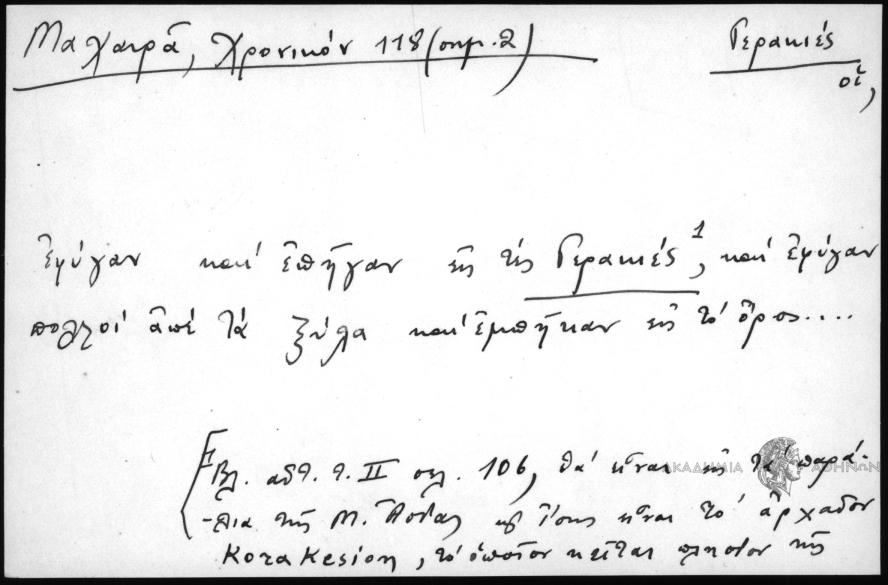 Μαχαιρᾶ, Χρονικόν 118 (σημ. 2)
Γερακιές
οἱ,
ἐφύγαν καὶ ἐπῆγαν εἰς τὲς Γερακιές¹, καὶ ἐφύγαν
πολλοὶ ἀπὲ τὰ ξύλα καὶ ἐμπῆκαν εἰς τὸ ὄρος....
[¹ Βλ. αὐτ. τ. II σελ. 106, θὰ εἶναι εἰς τὰ παρά-
-λια τῆς Μ. Ἀσίας καὶ ἴσως εἶναι τὸ ἀρχαῖον
Korakesion, τὸ ὁποῖον κεῖται πλησίον τῆς
ΑΚΑΔΗΜΙΑ ΑΘΗΝΩΝ